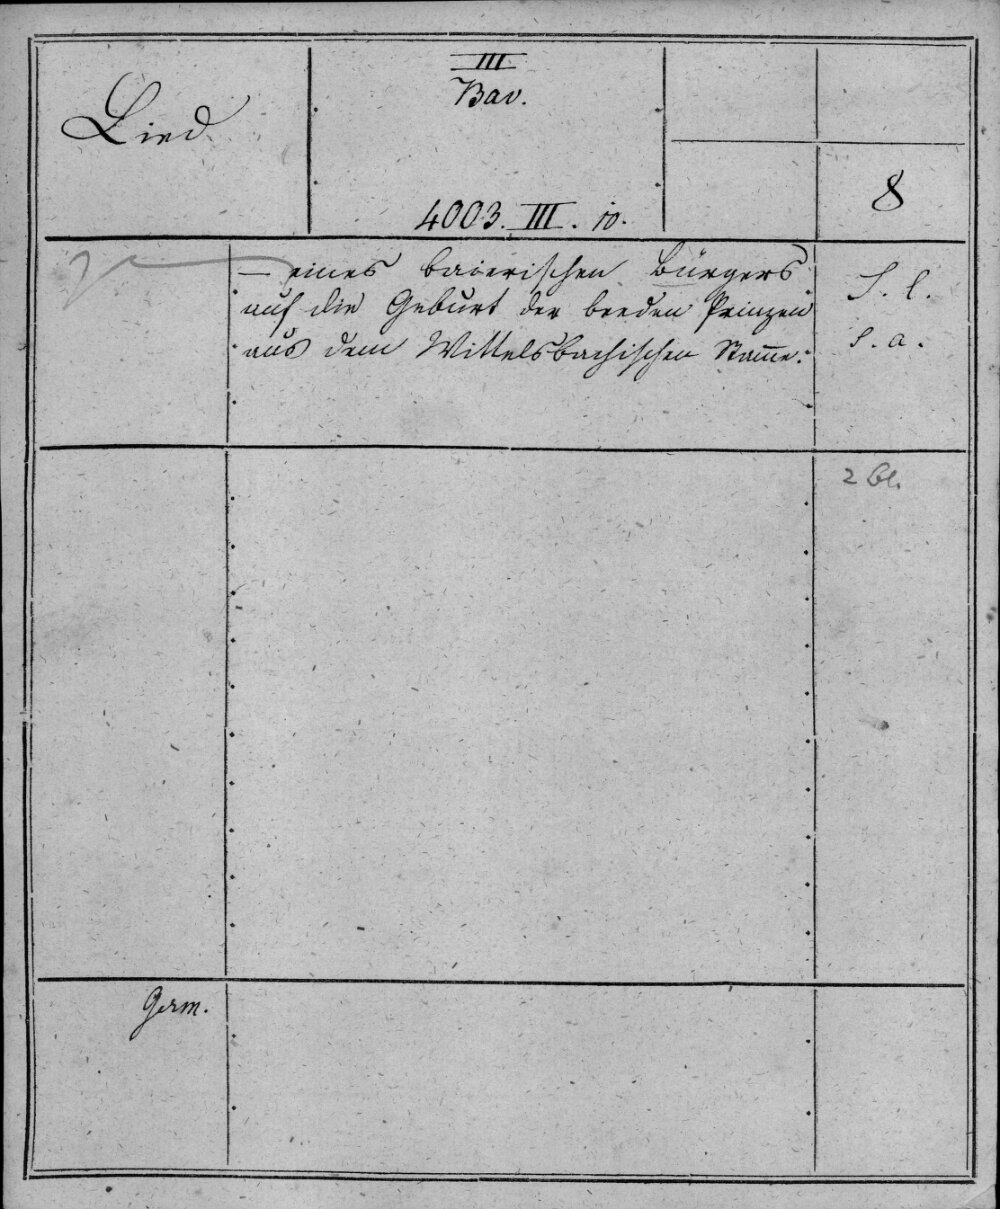 Lied
III
Bav.
4003. III. 10.
8
— eines baierischen Bürgers
auf die Geburt der beeden Prinzen
aus dem Wittelsbachischen Stam̅e.
S. l.
s. a.
2 Bl.
Germ.